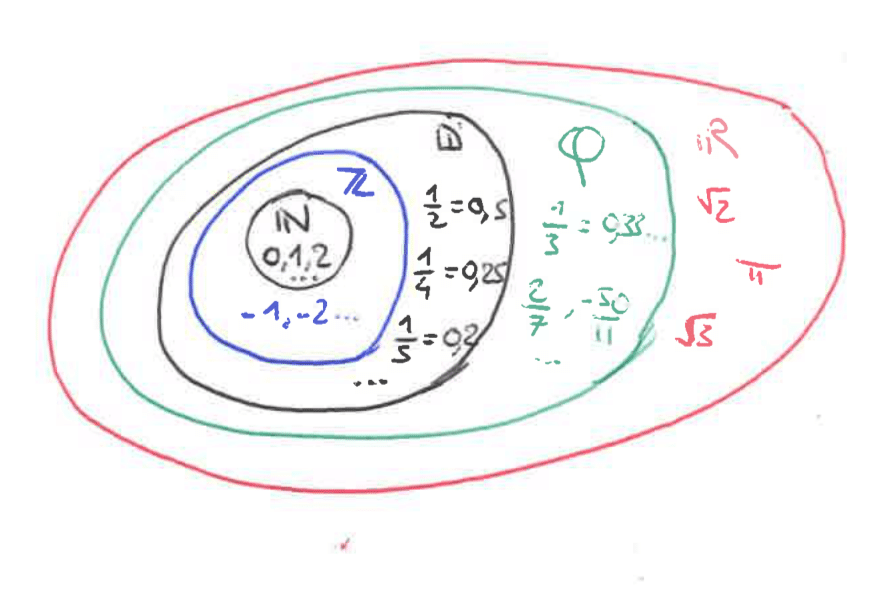 ℕ
0,1,2
...
ℤ
-1,-2...
𝔻
1/2=0,5
1/4=0,25
1/5=0,2
...
ℚ
1/3=0,33...
2/7, -50/11
...
ℝ
√2
π
√3